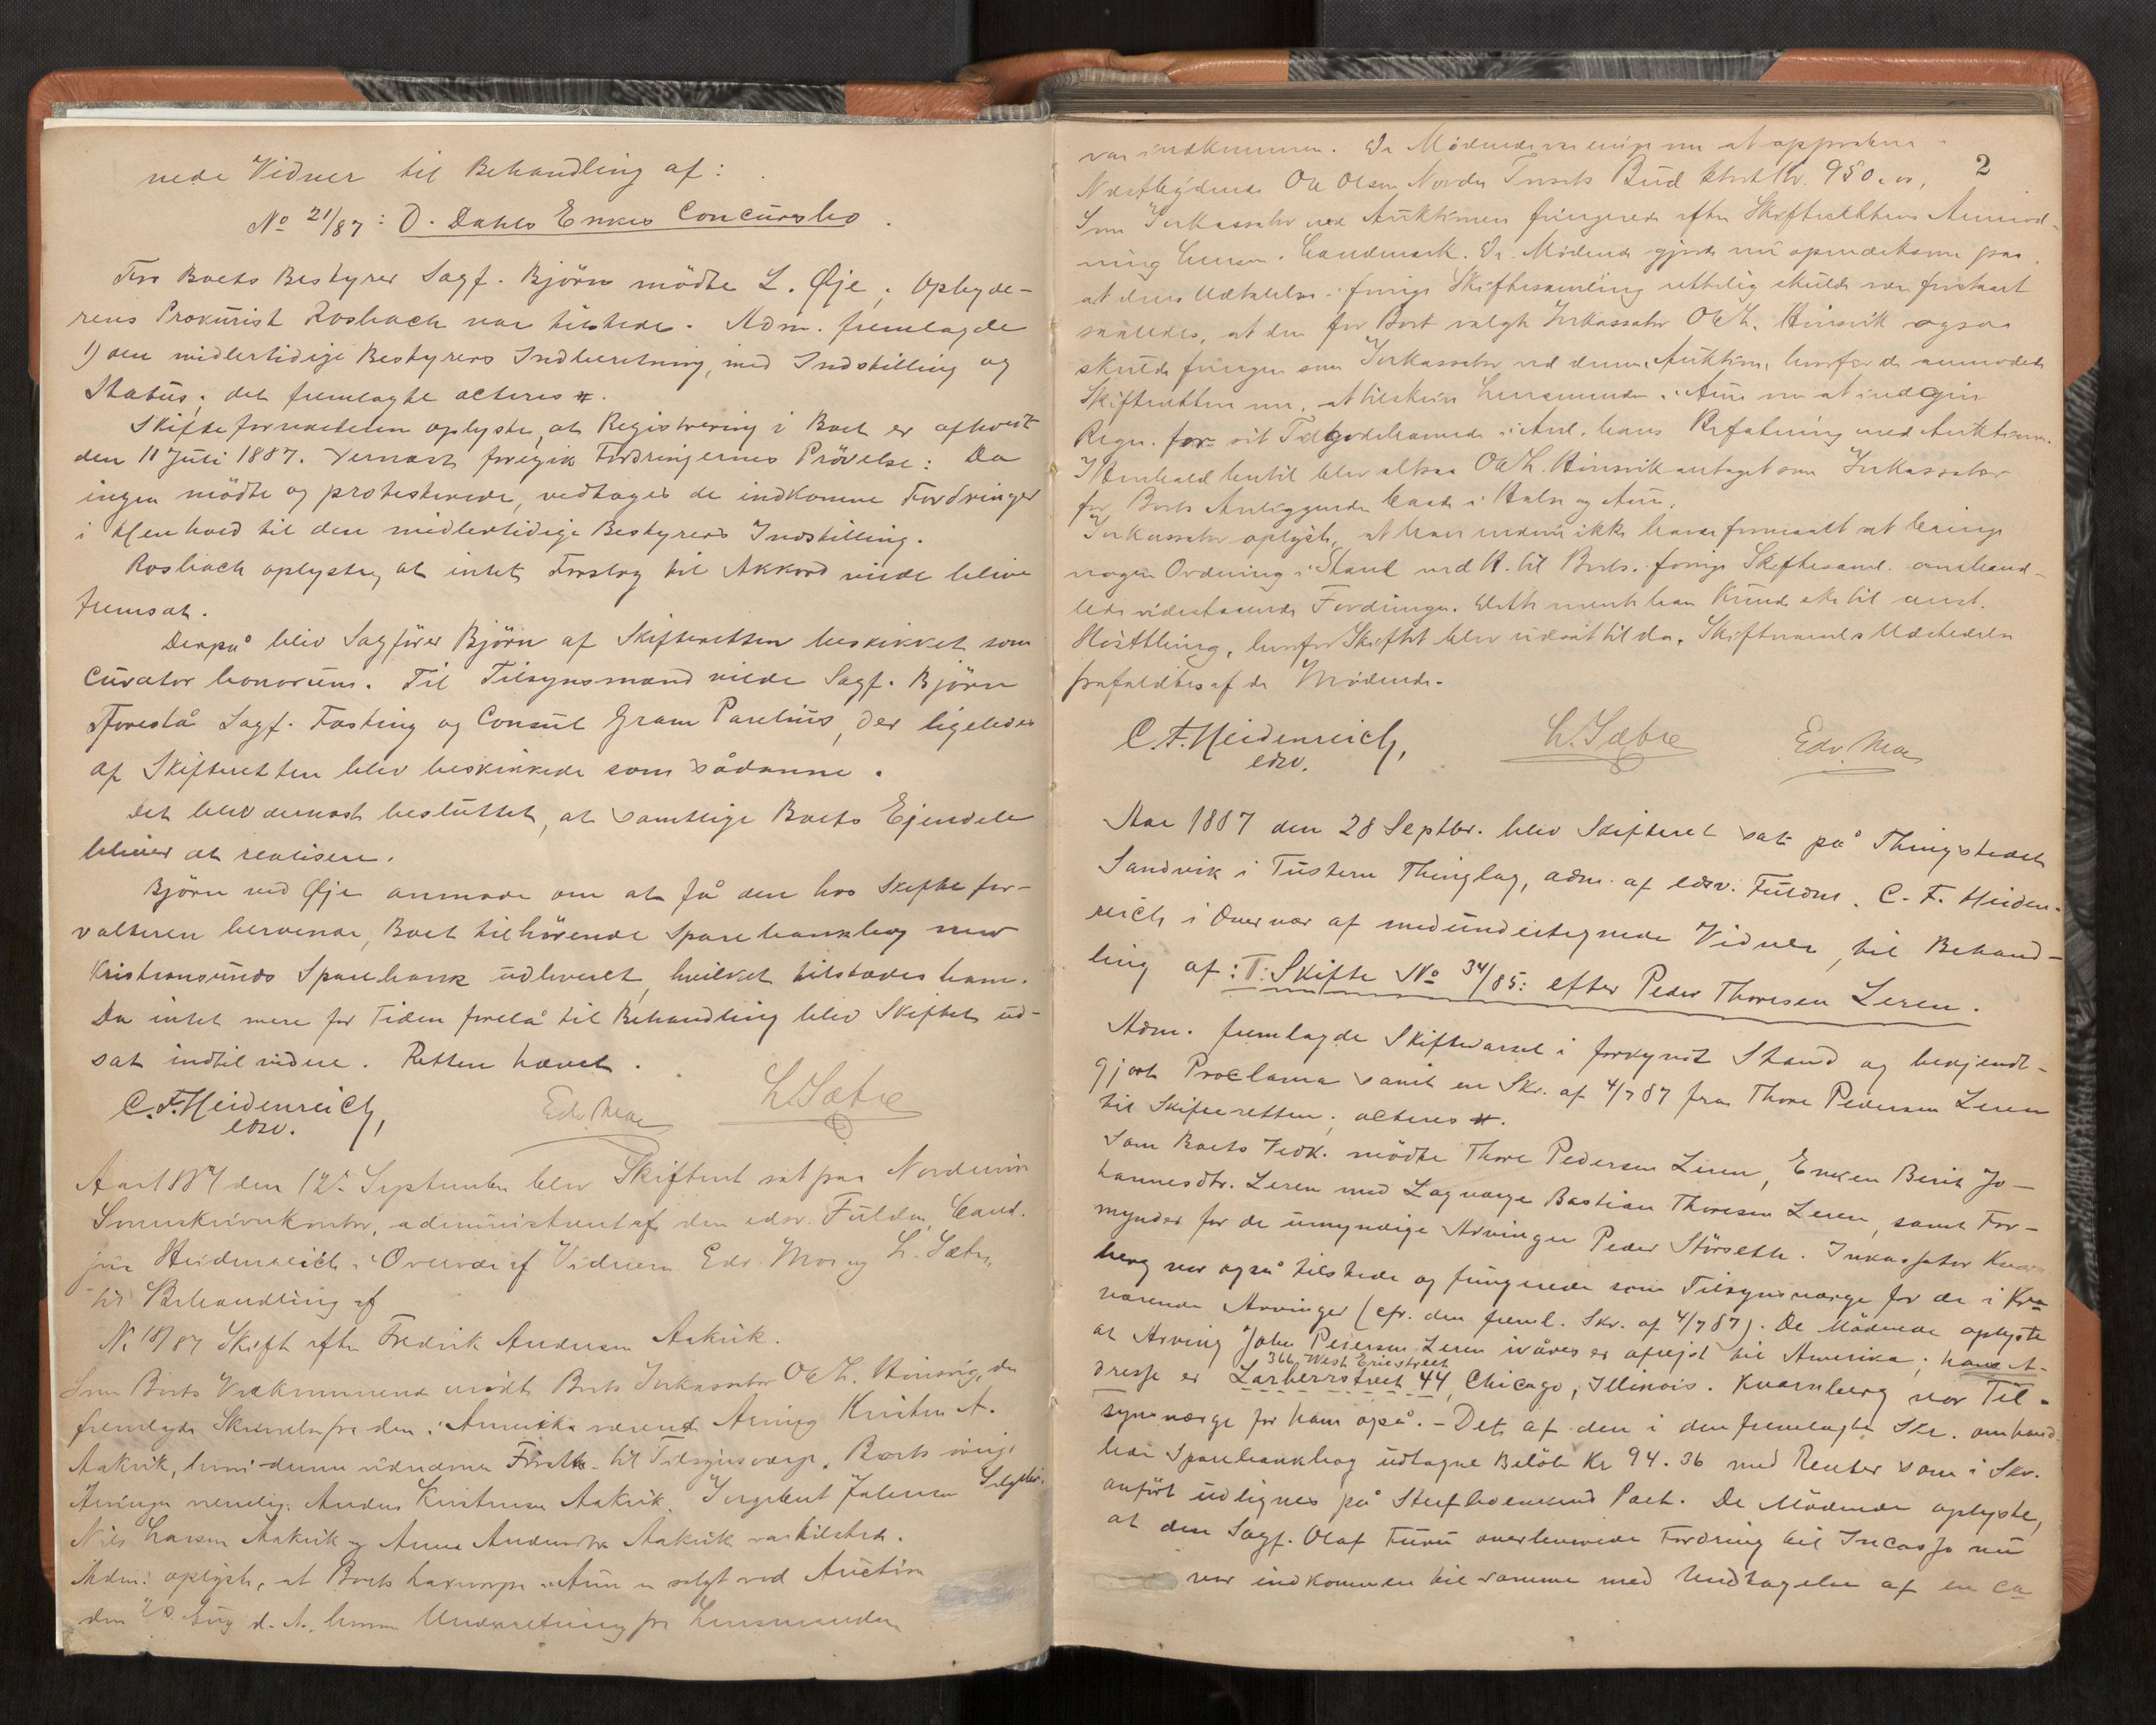 nede Vidner til Behandling af:
No 21/87: O. Dahls Enkes Concursbo.
For Boets Bestyrer Sagf. Björn mödte L. Øje; Opbyde-
rens Prokurist Rosbach var tilstede. Adm. fremlagde
1) den midlertidige Bestyrers Indberetning, med Indstilling og
Status; det fremlagte acteres #.
Skifteforvalteren oplyste, at Registrering i Boet er afholdt
den 11 Juli 1887. Dernæst foregik Fordringernes Prövelse: Da
ingen mödte og protesterede, vedtages de indkomne Fordringer
i Henhold til den midlertidige Bestyrers Indstilling.
Rosbach oplyste, at intet Forslag til Akkord vilde blive
fremsat.
Derpå blev Sagförer Björn af Skifteretten beskikket som
curator bonorum. Til Tilsynsmænd vilde Sagf. Björn
foreslå Sagf. Fasting og Consul Gram Parelius, der ligeledes
af Skifteretten blev beskikkede som sådanne.
Det blev dernæst besluttet, at samtlige Boets Ejendele
bliver at realisere.
Björn ved Øje anmode om at få den hos Skiftefor-
valteren beroende, Boet tilhörende Sparebankbog med
Kristiansunds Sparebank udleveret, hvilket tilstodes ham.
Da intet mere for Tiden forelå til Behandling blev Skiftet ud-
sat indtil videre. Retten hævet.
C. F. Heidenreich, Edv. Moe L. Sæbre
edsv.
Aar 1887 den 12. September blev Skifteret sat paa Nordmør
Sorenskriverkontor, administreret af den edsv. Fuldm. Cand.
jur Heidenreich i Overvær af Vidnerne Edv. Moe og L. Sæbre,
til Behandling af
No 18/87 Skift efter Fredrik Andersen Aakvik.
Som Boets Vedkommende mødte Boets Inkassator O. Hinsvig, der
fremlagde Skrivelse fra den i Amerika værende Arving Kristen A.
Aakvik, hvori denne Tilsynsværge. Boets øvrige
Arvinger nemlig: Anders Kristensen Aakvik, Ingebrigt Johnsen
Nils Larsen Aakvik og Anne Andersdtr Aakvik var tilstede.
Adm: oplyste, at Boets i Aure er solgt ved Auction
den 20 Aug d. A., hvorom Underretning fra Lensmanden
2
var indkommen. De Mødende var enige om at approbere
Næstbydende Ole Olsen Nordre Bud stort Kr. 950.00.
Som Inkassator ved Auktionen fungerede efter Skifterettens Anmod-
ning Landmark. De Mødende gjorde nu opmerksom paa,
at deres Udtalelse i forrige Skiftesamling rettelig skulde være forstaaet
saaledes, at den for Boet valgte Inkassator O. Hinsvik ogsaa
skulde fungere som Inkassator ved denne Auktion, hvorfor de anmodede
Skifteretten om, at tilskrive Lensmanden i Aure om at indgive
Regn. for sit Tilgodehavende i Anl. hans Befatning med Auktionen.
I Henhold hertil blev altsaa O. Hinsvik antaget som Inkassator
for Boets Anliggender baade i Halse og Aure.
Inkassator oplyste, at han endnu ikke havde formaaet at bringe
nogen Ordning i Stand med H. til Boets i forrige Skiftesaml. omhand-
lede Fordringer. Dette mente han kunde ske til anst.
Høstthing, hvorfor Skiftet blev udsat til da. Skiftesaml.s Udskrift
frafaldtes af de Mødende.
C. F. Heidenreich, L. Sæbre Edv. Moe
edsv.
Aar 1887 den 28 Septbr. blev Skifteret sat på Thingstedet
Sandvik i Tusteren Thinglag, adm. af edsv. Fuldm. C. F. Heiden-
reich i Overvær af medundertegnede Vidner, til Behand-
ling af: I: Skifte No 34/85: efter Peder Thoresen Leren.
Adm. fremlagde Skiftevarsel i forkyndt Stand og bekjendt-
gjort Proclama samt en Skr. af 4/7 87 fra Thore Pedersen Leren
til Skifteretten; acteres #.
Som Boets Vedk. mödte Thore Pedersen Leren, Enken Berit Jo-
hannesdtr. Leren med Lagværge Bastian Thoresen Leren, samt For-
mynder for de umyndige Arvinger Peder Störseth. Inkassator Kvarn-
berg var også tilstede og fungerede som Tilsynsværge for de i Fra-
værende Arvinger (cfr. den freml. Skr. af 4/7 87). De Mödende oplyste
at Arving John Pedersen Leren ivåres er afrejst til Amerika; hans A-
366 West Erie street
dresse er Larberrstreet 44, Chicago, Illinois. Kvarnberg var Til-
synsværge for ham også. - Det af den i den fremlagte Skr. omhand-
lede Sparebankbog udtagne Belöb Kr 94.36 med Renter som i Skr.
anfört udlignes på Stervboenkens Part. De Mödende oplyste,
at den Sagf. Olaf Furu overleverede Fordring til Incasso nu
var indkommen til samme med Undtagelse af en ca